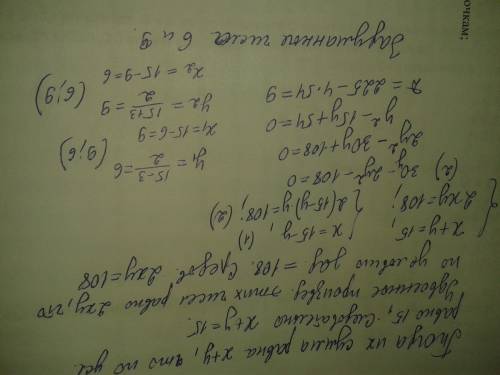 Тогда их сумма равна x+y, что по усл.
равно 15, Следовательно x+y=15.
Удвоенное произвед. этих чисел равно 2xy, что
по условию зад. = 108. Следов. 2xy=108
{ x+y=15, { x=15-y, (1)
{ 2xy=108; { 2(15-y)y=108; (2)
(2) 30y-2y²-108=0
2y²-30y+108=0
y²-15y+54=0
D=225-4·54=9
y₁=(15-3)/2=6
x₁=15-6=9 (9;6)
y₂=(15+3)/2=9
x₂=15-9=6 (6;9)
Задуманные числа 6 и 9.
очкам;